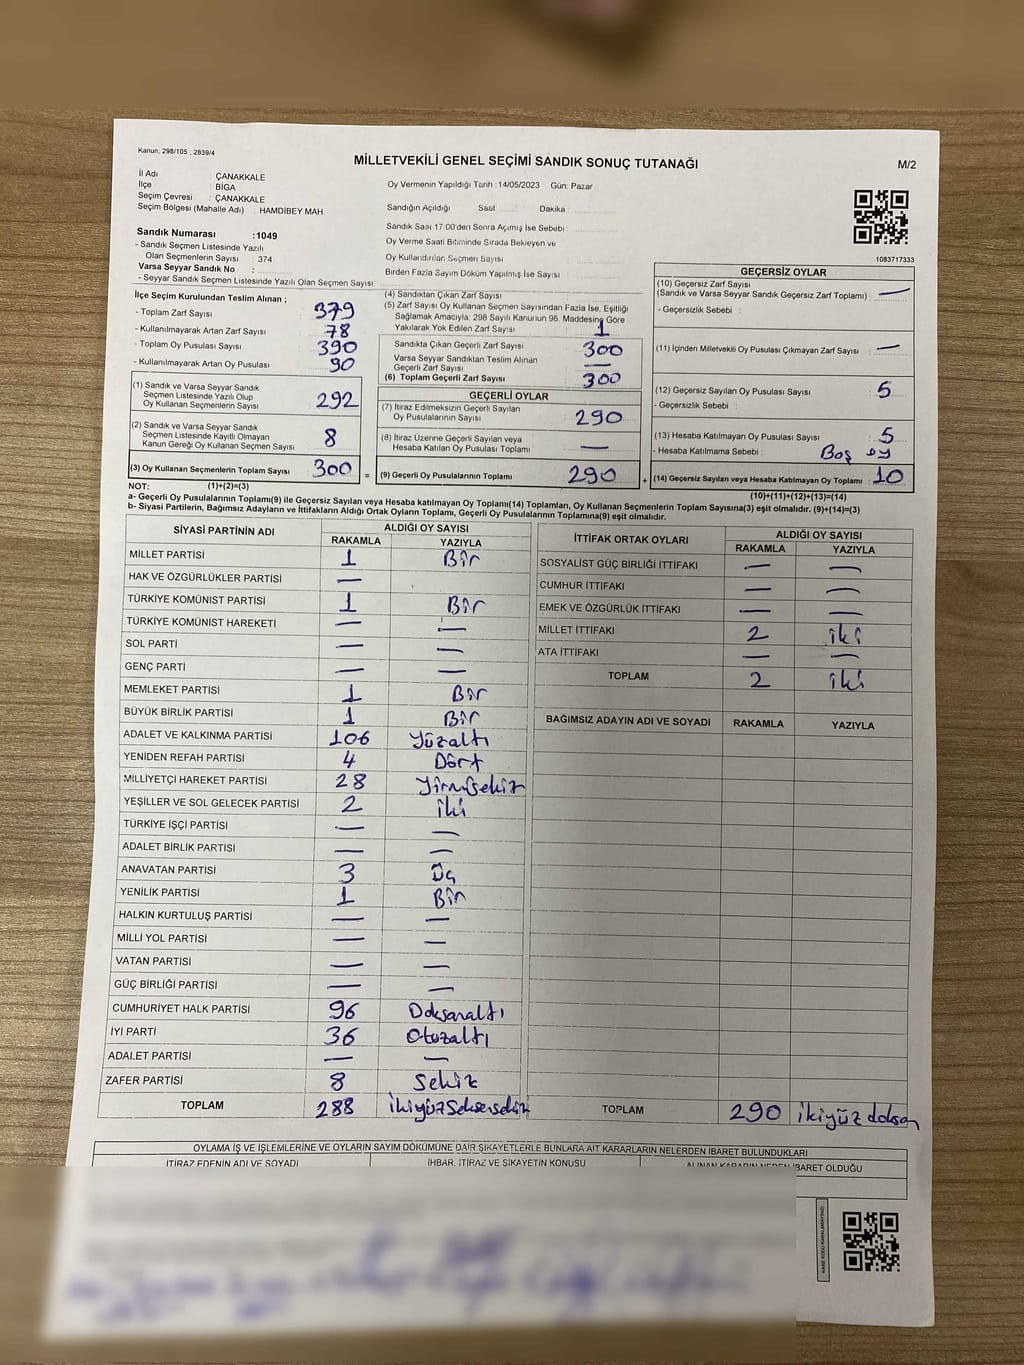 Kanun, 298/105 , 2839/4
MİLLETVEKİLİ GENEL SEÇİMİ SANDIK SONUÇ TUTANAĞI
M/2
İl Adı : ÇANAKKALE
İlçe : BİGA
Seçim Çevresi : ÇANAKKALE
Seçim Bölgesi (Mahalle Adı) : HAMDİBEY MAH.
Oy Vermenin Yapıldığı Tarih : 14/05/2023 Gün: Pazar
Sandığın Açıldığı Saat ........ Dakika : ........
Sandık Saat 17.00'den Sonra Açılmış İse Sebebi :
Oy Verme Saati Bitiminde Sırada Bekleyen ve
Oy Kullandırılan Seçmen Sayısı
Birden Fazla Sayım Döküm Yapılmış İse Sayısı
Sandık Numarası : 1049
- Sandık Seçmen Listesinde Yazılı
Olan Seçmenlerin Sayısı : 374
Varsa Seyyar Sandık No :
- Seyyar Sandık Seçmen Listesinde Yazılı Olan Seçmen Sayısı:
1083717333
İlçe Seçim Kurulundan Teslim Alınan ;
- Toplam Zarf Sayısı 379
- Kullanılmayarak Artan Zarf Sayısı 78
- Toplam Oy Pusulası Sayısı 390
- Kullanılmayarak Artan Oy Pusulası 90
(1) Sandık ve Varsa Seyyar Sandık
Seçmen Listesinde Yazılı Olup
Oy Kullanan Seçmenlerin Sayısı 292
(2) Sandık ve Varsa Seyyar Sandık
Seçmen Listesinde Kayıtlı Olmayan
Kanun Gereği Oy Kullanan Seçmen Sayısı 8
(3) Oy Kullanan Seçmenlerin Toplam Sayısı 300 =
(4) Sandıktan Çıkan Zarf Sayısı
(5) Zarf Sayısı Oy Kullanan Seçmen Sayısından Fazla İse, Eşitliği
Sağlamak Amacıyla; 298 Sayılı Kanunun 98. Maddesine Göre
Yakılarak Yok Edilen Zarf Sayısı 1
Sandıkta Çıkan Geçerli Zarf Sayısı 300
Varsa Seyyar Sandıktan Teslim Alınan
Geçerli Zarf Sayısı —
(6) Toplam Geçerli Zarf Sayısı 300
GEÇERLİ OYLAR
(7) İtiraz Edilmeksizin Geçerli Sayılan
Oy Pusulalarının Sayısı 290
(8) İtiraz Üzerine Geçerli Sayılan veya
Hesaba Katılan Oy Pusulası Toplamı —
(9) Geçerli Oy Pusulalarının Toplamı 290 +
GEÇERSİZ OYLAR
(10) Geçersiz Zarf Sayısı
(Sandık ve Varsa Seyyar Sandık Geçersiz Zarf Toplamı) : —
- Geçersizlik Sebebi :
(11) İçinden Milletvekili Oy Pusulası Çıkmayan Zarf Sayısı —
(12) Geçersiz Sayılan Oy Pusulası Sayısı 5
- Geçersizlik Sebebi :
(13) Hesaba Katılmayan Oy Pusulası Sayısı 5
- Hesaba Katılmama Sebebi : Boş oy
(14) Geçersiz Sayılan veya Hesaba Katılmayan Oy Toplamı : 10
NOT: (1)+(2)=(3)
(10)+(11)+(12)+(13)=(14)
a- Geçerli Oy Pusulalarının Toplamı(9) ile Geçersiz Sayılan veya Hesaba katılmayan Oy Toplamı(14) Toplamları, Oy Kullanan Seçmenlerin Toplam Sayısına(3) eşit olmalıdır. (9)+(14)=(3)
b- Siyasi Partilerin, Bağımsız Adayların ve İttifakların Aldığı Ortak Oyların Toplamı, Geçerli Oy Pusulalarının Toplamına(9) eşit olmalıdır.
SİYASİ PARTİNİN ADI ALDIĞI OY SAYISI
RAKAMLA YAZIYLA
MİLLET PARTİSİ 1 Bir
HAK VE ÖZGÜRLÜKLER PARTİSİ —
TÜRKİYE KOMÜNİST PARTİSİ 1 Bir
TÜRKİYE KOMÜNİST HAREKETİ — —
SOL PARTİ — —
GENÇ PARTİ — —
MEMLEKET PARTİSİ 1 Bir
BÜYÜK BİRLİK PARTİSİ 1 Bir
ADALET VE KALKINMA PARTİSİ 106 Yüzaltı
YENİDEN REFAH PARTİSİ 4 Dört
MİLLİYETÇİ HAREKET PARTİSİ 28 Yirmisekiz
YEŞİLLER VE SOL GELECEK PARTİSİ 2 iki
TÜRKİYE İŞÇİ PARTİSİ — —
ADALET BİRLİK PARTİSİ — —
ANAVATAN PARTİSİ 3 Üç
YENİLİK PARTİSİ 1 Bir
HALKIN KURTULUŞ PARTİSİ — —
MİLLİ YOL PARTİSİ — —
VATAN PARTİSİ — —
GÜÇ BİRLİĞİ PARTİSİ — —
CUMHURİYET HALK PARTİSİ 96 Doksanaltı
İYİ PARTİ 36 Otuzaltı
ADALET PARTİSİ — —
ZAFER PARTİSİ 8 Sekiz
TOPLAM 288 ikiyüzseksensekiz
İTTİFAK ORTAK OYLARI ALDIĞI OY SAYISI
RAKAMLA YAZIYLA
SOSYALİST GÜÇ BİRLİĞİ İTTİFAKI — —
CUMHUR İTTİFAKI — —
EMEK VE ÖZGÜRLÜK İTTİFAKI — —
MİLLET İTTİFAKI 2 iki
ATA İTTİFAKI — —
TOPLAM 2 iki
BAĞIMSIZ ADAYIN ADI VE SOYADI RAKAMLA YAZIYLA
TOPLAM 290 ikiyüz doksan
OYLAMA İŞ VE İŞLEMLERİNE VE OYLARIN SAYIM DÖKÜMÜNE DAİR ŞİKAYETLERLE BUNLARA AİT KARARLARIN NELERDEN İBARET BULUNDUKLARI
İTİRAZ EDENİN ADI VE SOYADI İHBAR, İTİRAZ VE ŞİKAYETİN KONUSU ALINAN KARARIN NEDEN İBARET OLDUĞU